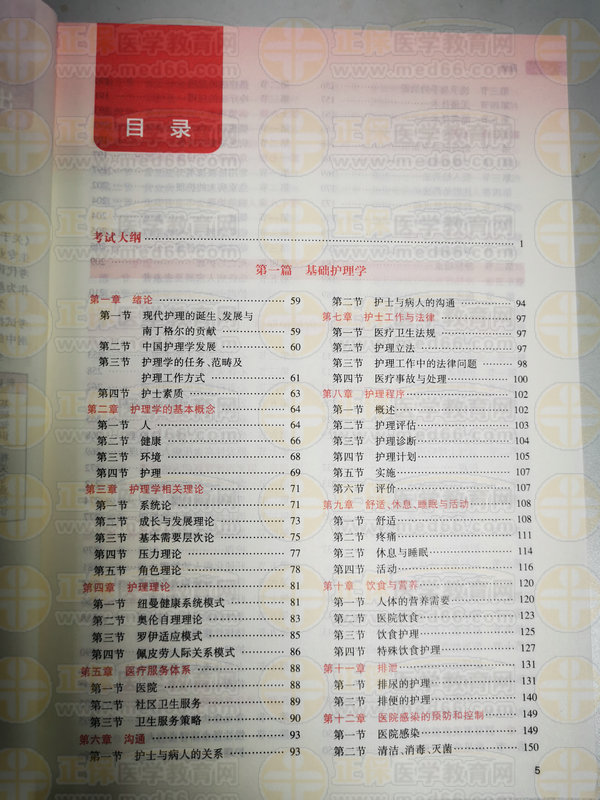 目录
考试大纲 1
第一篇 基础护理学
第一章 绪论 59
第一节 现代护理的诞生、发展与
南丁格尔的贡献 59
第二节 中国护理学发展 60
第三节 护理学的任务、范畴及
护理工作方式 61
第四节 护士素质 63
第二章 护理学的基本概念 64
第一节 人 64
第二节 健康 66
第三节 环境 68
第四节 护理 69
第三章 护理学相关理论 71
第一节 系统论 71
第二节 成长与发展理论 73
第三节 基本需要层次论 75
第四节 压力理论 77
第五节 角色理论 78
第四章 护理理论 81
第一节 纽曼健康系统模式 81
第二节 奥伦自理理论 83
第三节 罗伊适应模式 85
第四节 佩皮劳人际关系模式 86
第五章 医疗服务体系 88
第一节 医院 88
第二节 社区卫生服务 89
第三节 卫生服务策略 90
第六章 沟通 93
第一节 护士与病人的关系 93
第二节 护士与病人的沟通 94
第七章 护士工作与法律 97
第一节 医疗卫生法规 97
第二节 护理立法 97
第三节 护理工作中的法律问题 98
第四节 医疗事故与处理 100
第八章 护理程序 102
第一节 概述 102
第二节 护理评估 103
第三节 护理诊断 104
第四节 护理计划 105
第五节 实施 107
第六节 评价 107
第九章 舒适、休息、睡眠与活动 108
第一节 舒适 108
第二节 疼痛 111
第三节 休息与睡眠 114
第四节 活动 116
第十章 饮食与营养 120
第一节 人体的营养需要 120
第二节 医院饮食 123
第三节 饮食护理 125
第四节 特殊饮食护理 127
第十一章 排泄 131
第一节 排尿的护理 131
第二节 排便的护理 140
第十二章 医院感染的预防和控制 149
第一节 医院感染 149
第二节 清洁、消毒、灭菌 150
5
正保医学教育网
www.med66.com